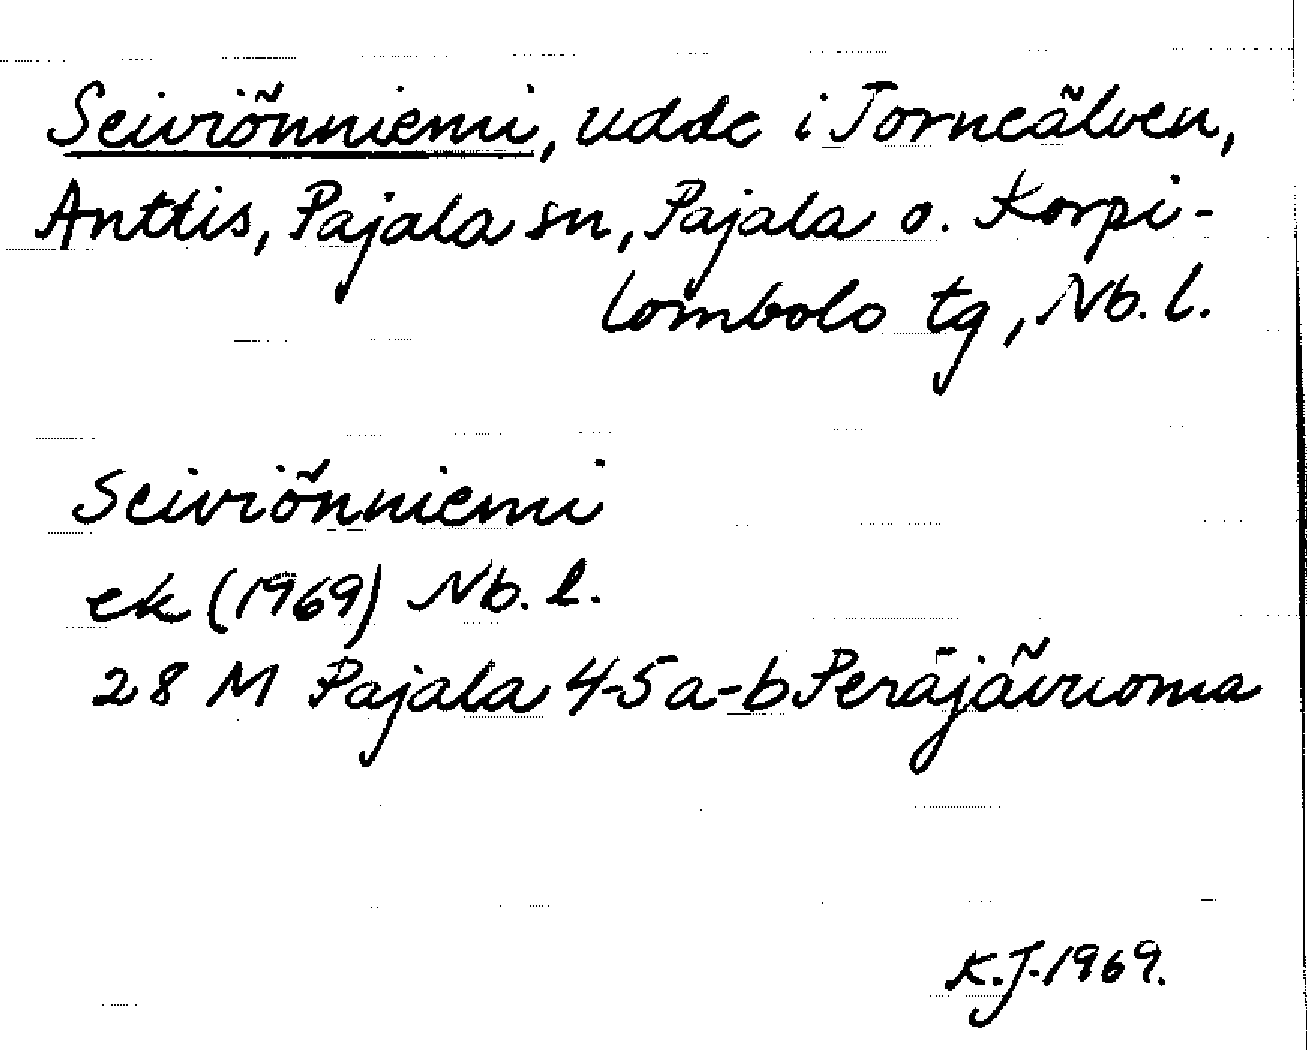 Seiviönniemi, udde i Torneälven,
Anttis, Pajala sn, Pajala o. Korpi-
lombolo tg, Nb. l.
Seiviönniemi
ek (1969) Nb. l.
28 M Pajala 4-5 a-b Peräjävuoma
K.J. 1969.